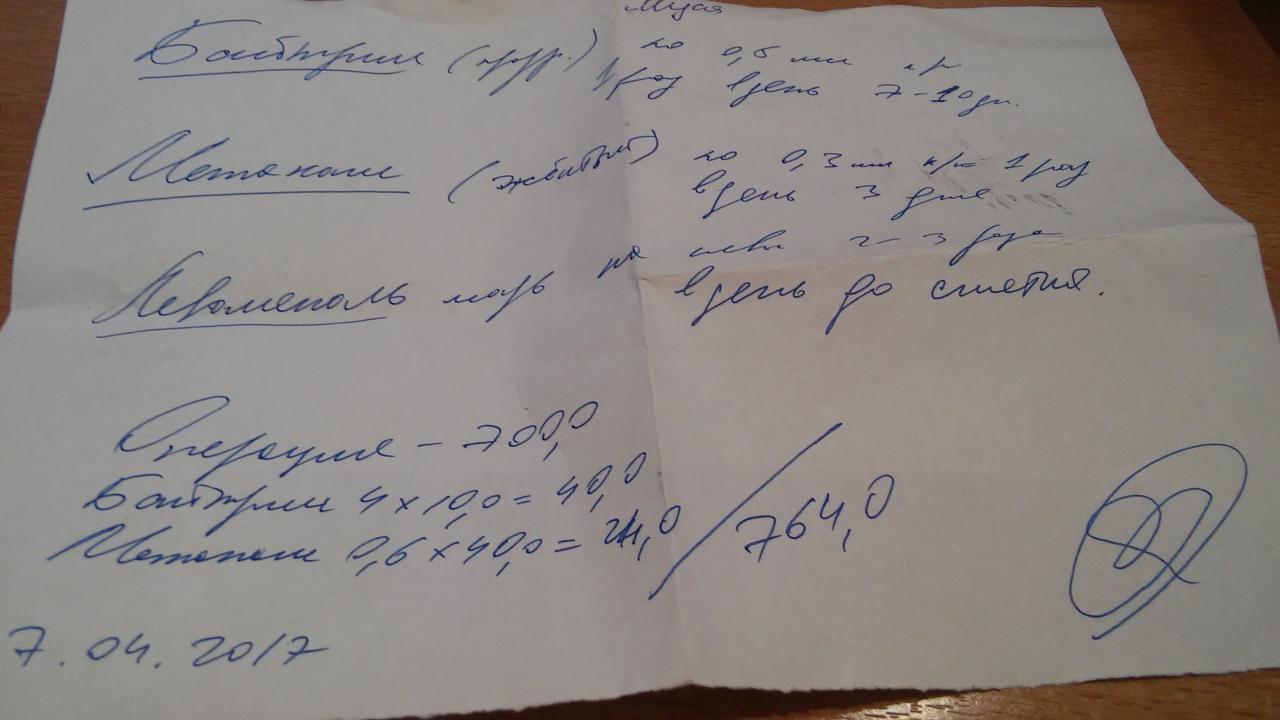 Муся
Байтрил (прозр.) по 0,5 мл п/к
1 раз в день 7-10 дн.
Метакам (желтый) по 0,3 мл п/к 1 раз
в день 3 дня
Левомеколь мазь на швы 2-3 раза
в день до снятия.
Операция - 700,0
Байтрил 4 х 10,0 = 40,0
Метакам 0,6 х 40,0 = 24,0 / 764,0
7.04.2017